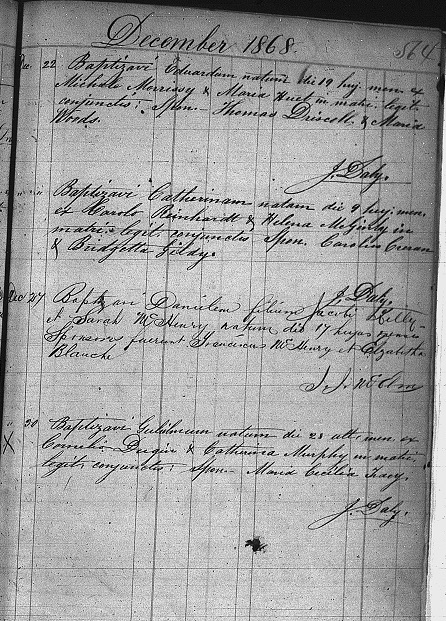 December 1868.
564
Dec 22 Baptizavi Eduardum natum die 19 huj. men. ex
Michale Morrissy & Maria Huet in matr. legit
conjunctis; Spon— Thomas Driscoll & Maria
Woods.
J. Daly.
" " Baptizavi Catherinam natam die 9 huj. men.
ex Carolo Reinhardt & Helena McGinty in
matr. legit conjunctis Spon. Carolin
& Bridgetta
J. Daly.
Dec 27 Baptizavi Danielem filium Jacobi Kelly
et Sarah McHenry natum die 17 hujus mensis
Sponsores fuerunt Franciscus McHenry et Elizabetha
Blanche
" 30 Baptizavi Gulielmum natum die 23 ult. men. ex
X Corneli. Dugin & Catherina Murphy in matr.
legit conjunctis; Spon— Maria Cecilia Tracy.
J. Daly.